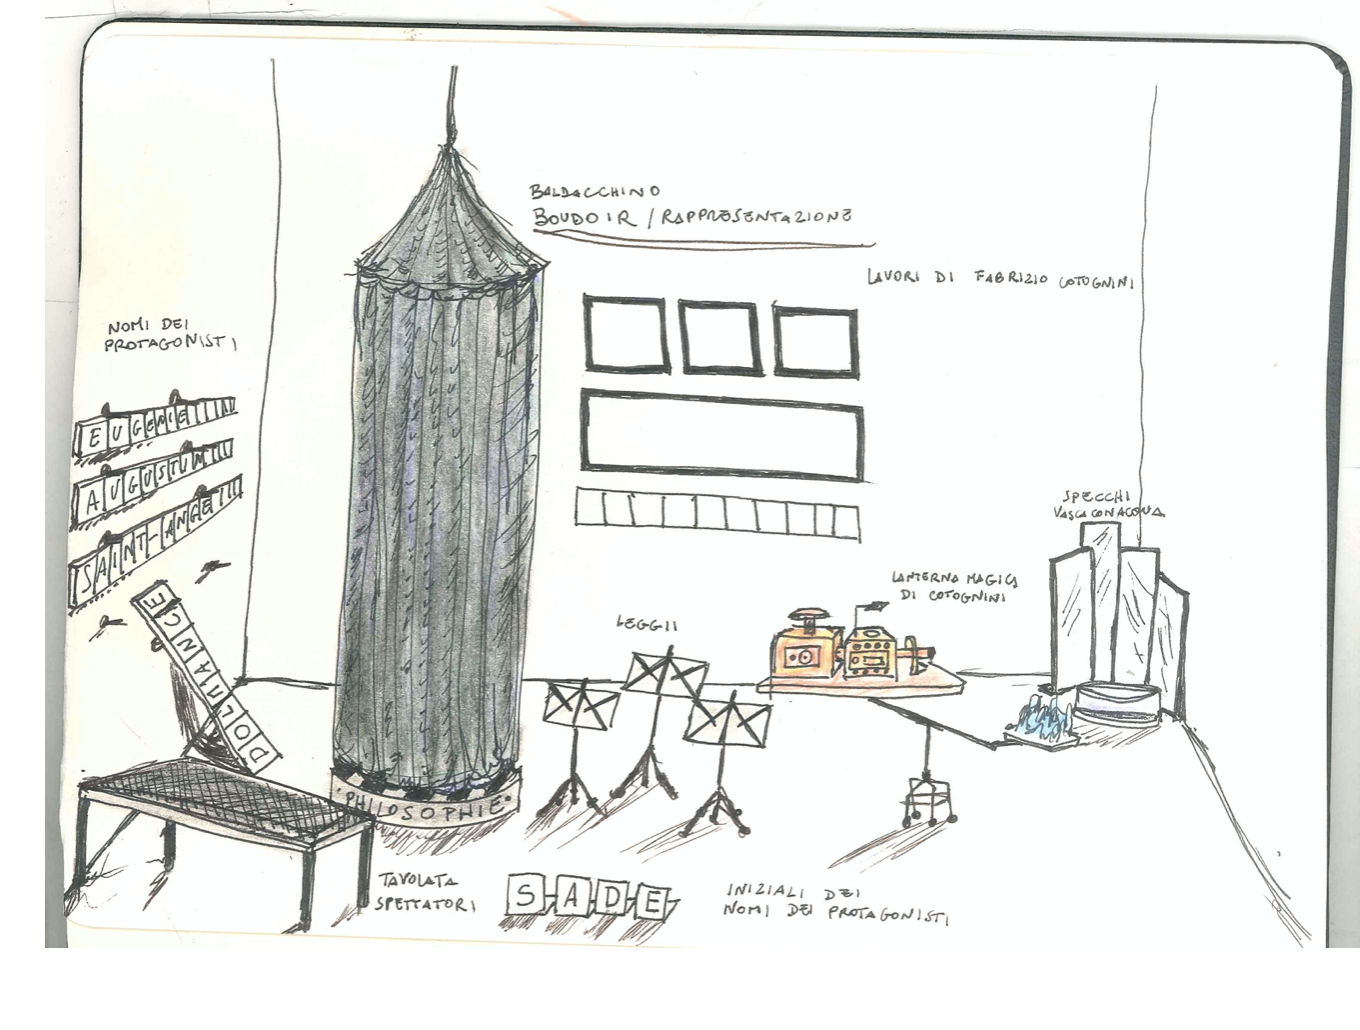 BALDACCHINO
BOUDOIR / RAPPRESENTAZIONE
LAVORI DI FABRIZIO COTOGNINI
NOMI DEI
PROTAGONISTI
EUGENIE
AUGUSTUM
SAINT-ANGE
DOLMANCE
SPECCHI
VASCA CON ACQUA
LANTERNA MAGICA
DI COTOGNINI
LEGGII
PHILOSOPHIE
TAVOLATA
SPETTATORI
SADE
INIZIALI DEI
NOMI DEI PROTAGONISTI